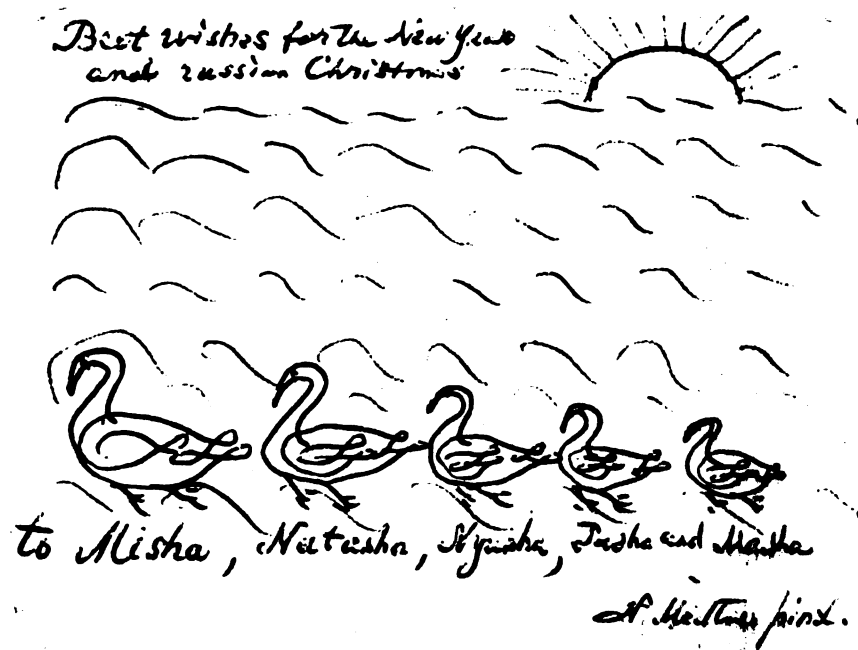 Best wishes for the New Year
and russian Christmas
to Misha, Natasha, Nyusha, Pasha and Masha
N. Medtner pinx.